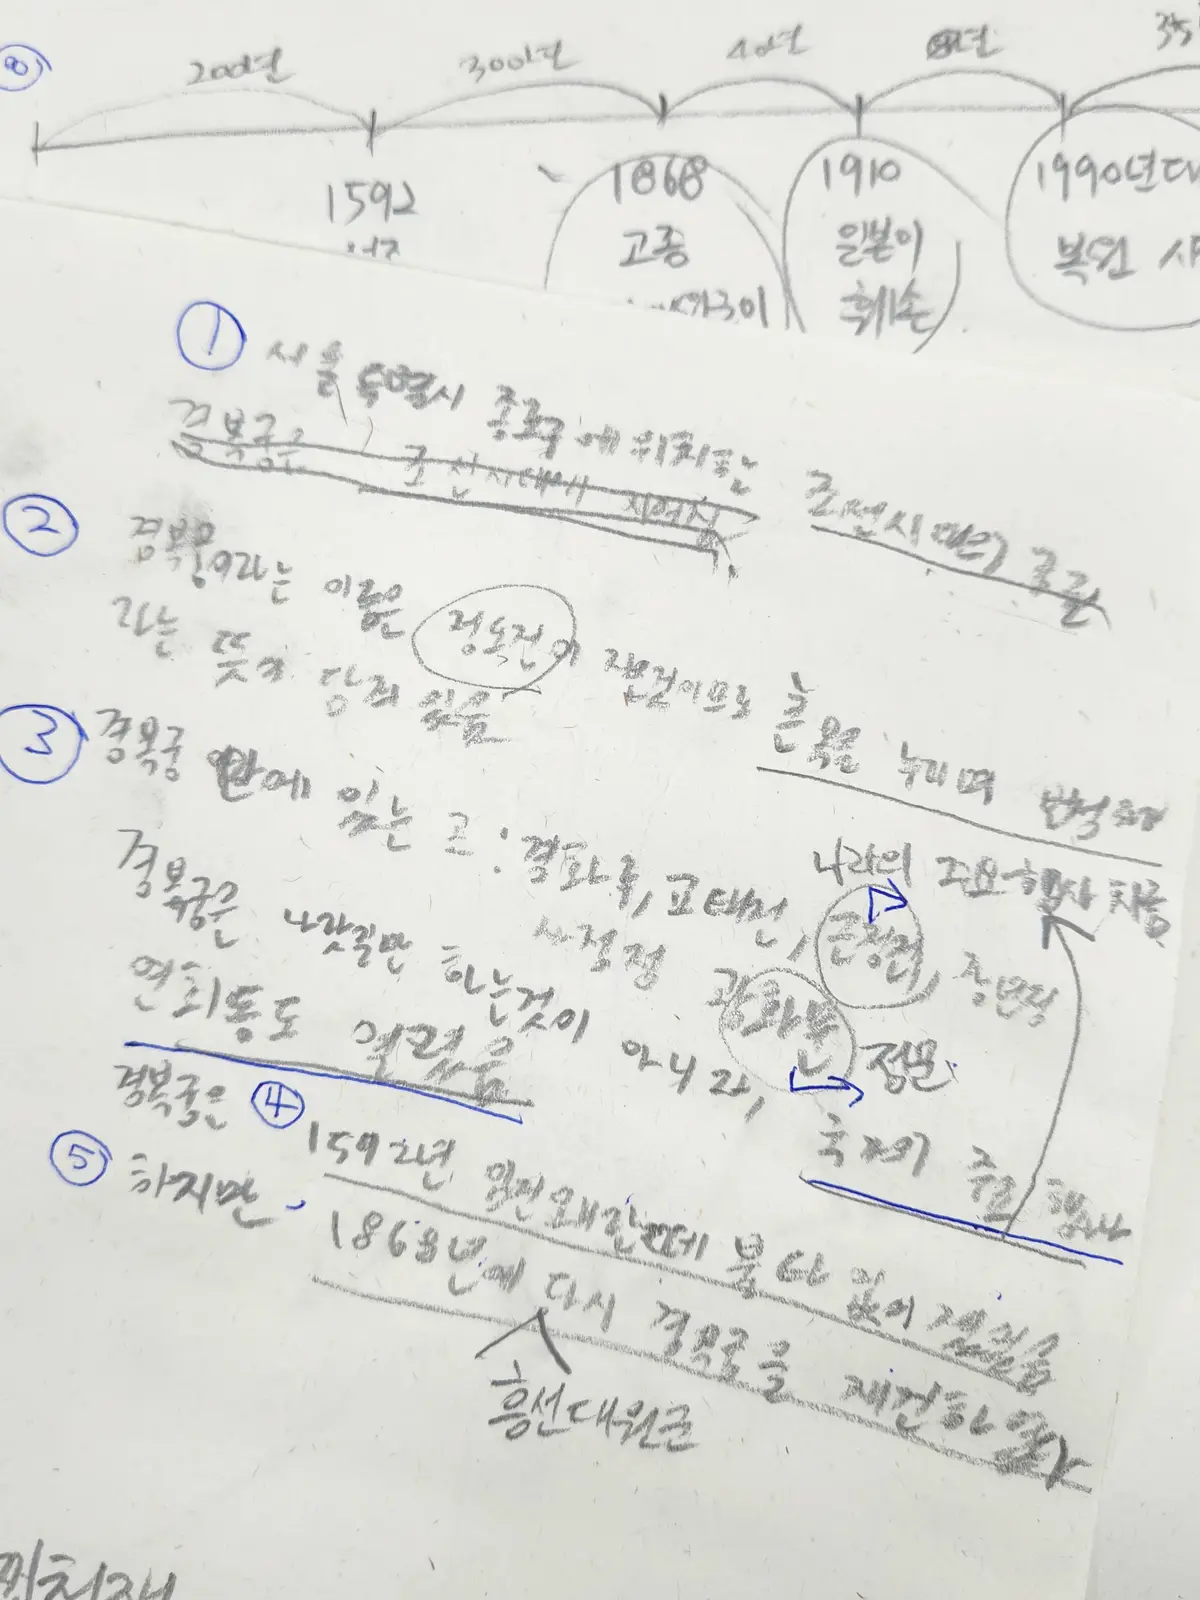 8
200년 300년 40년 80년 35
1592 1868 1910 1990년대
고종 일본이 복원 사
훼손
① 서울특별시 종로구에 위치한 조선시대의 궁궐
경복궁은 조선시대에 지어진
② 경복궁이라는 이름은 정도전이 지은것이므로 큰 복을 누리며 번창하
라는 뜻이 담겨 있음
③ 경복궁 안에 있는 고 : 경화루, 교태전, 근정전,
나라의 주요행사 치름
사정정 광화문 정문
경복궁은 나랏일만 하는것이 아니라, 국가의 주요 행사
연회등도 열렸음
경복궁은 ④ 1592년 임진왜란때 불타 없어졌음
⑤ 하지만, 1868년에 다시 경복궁을 재건하였다
흥선대원군